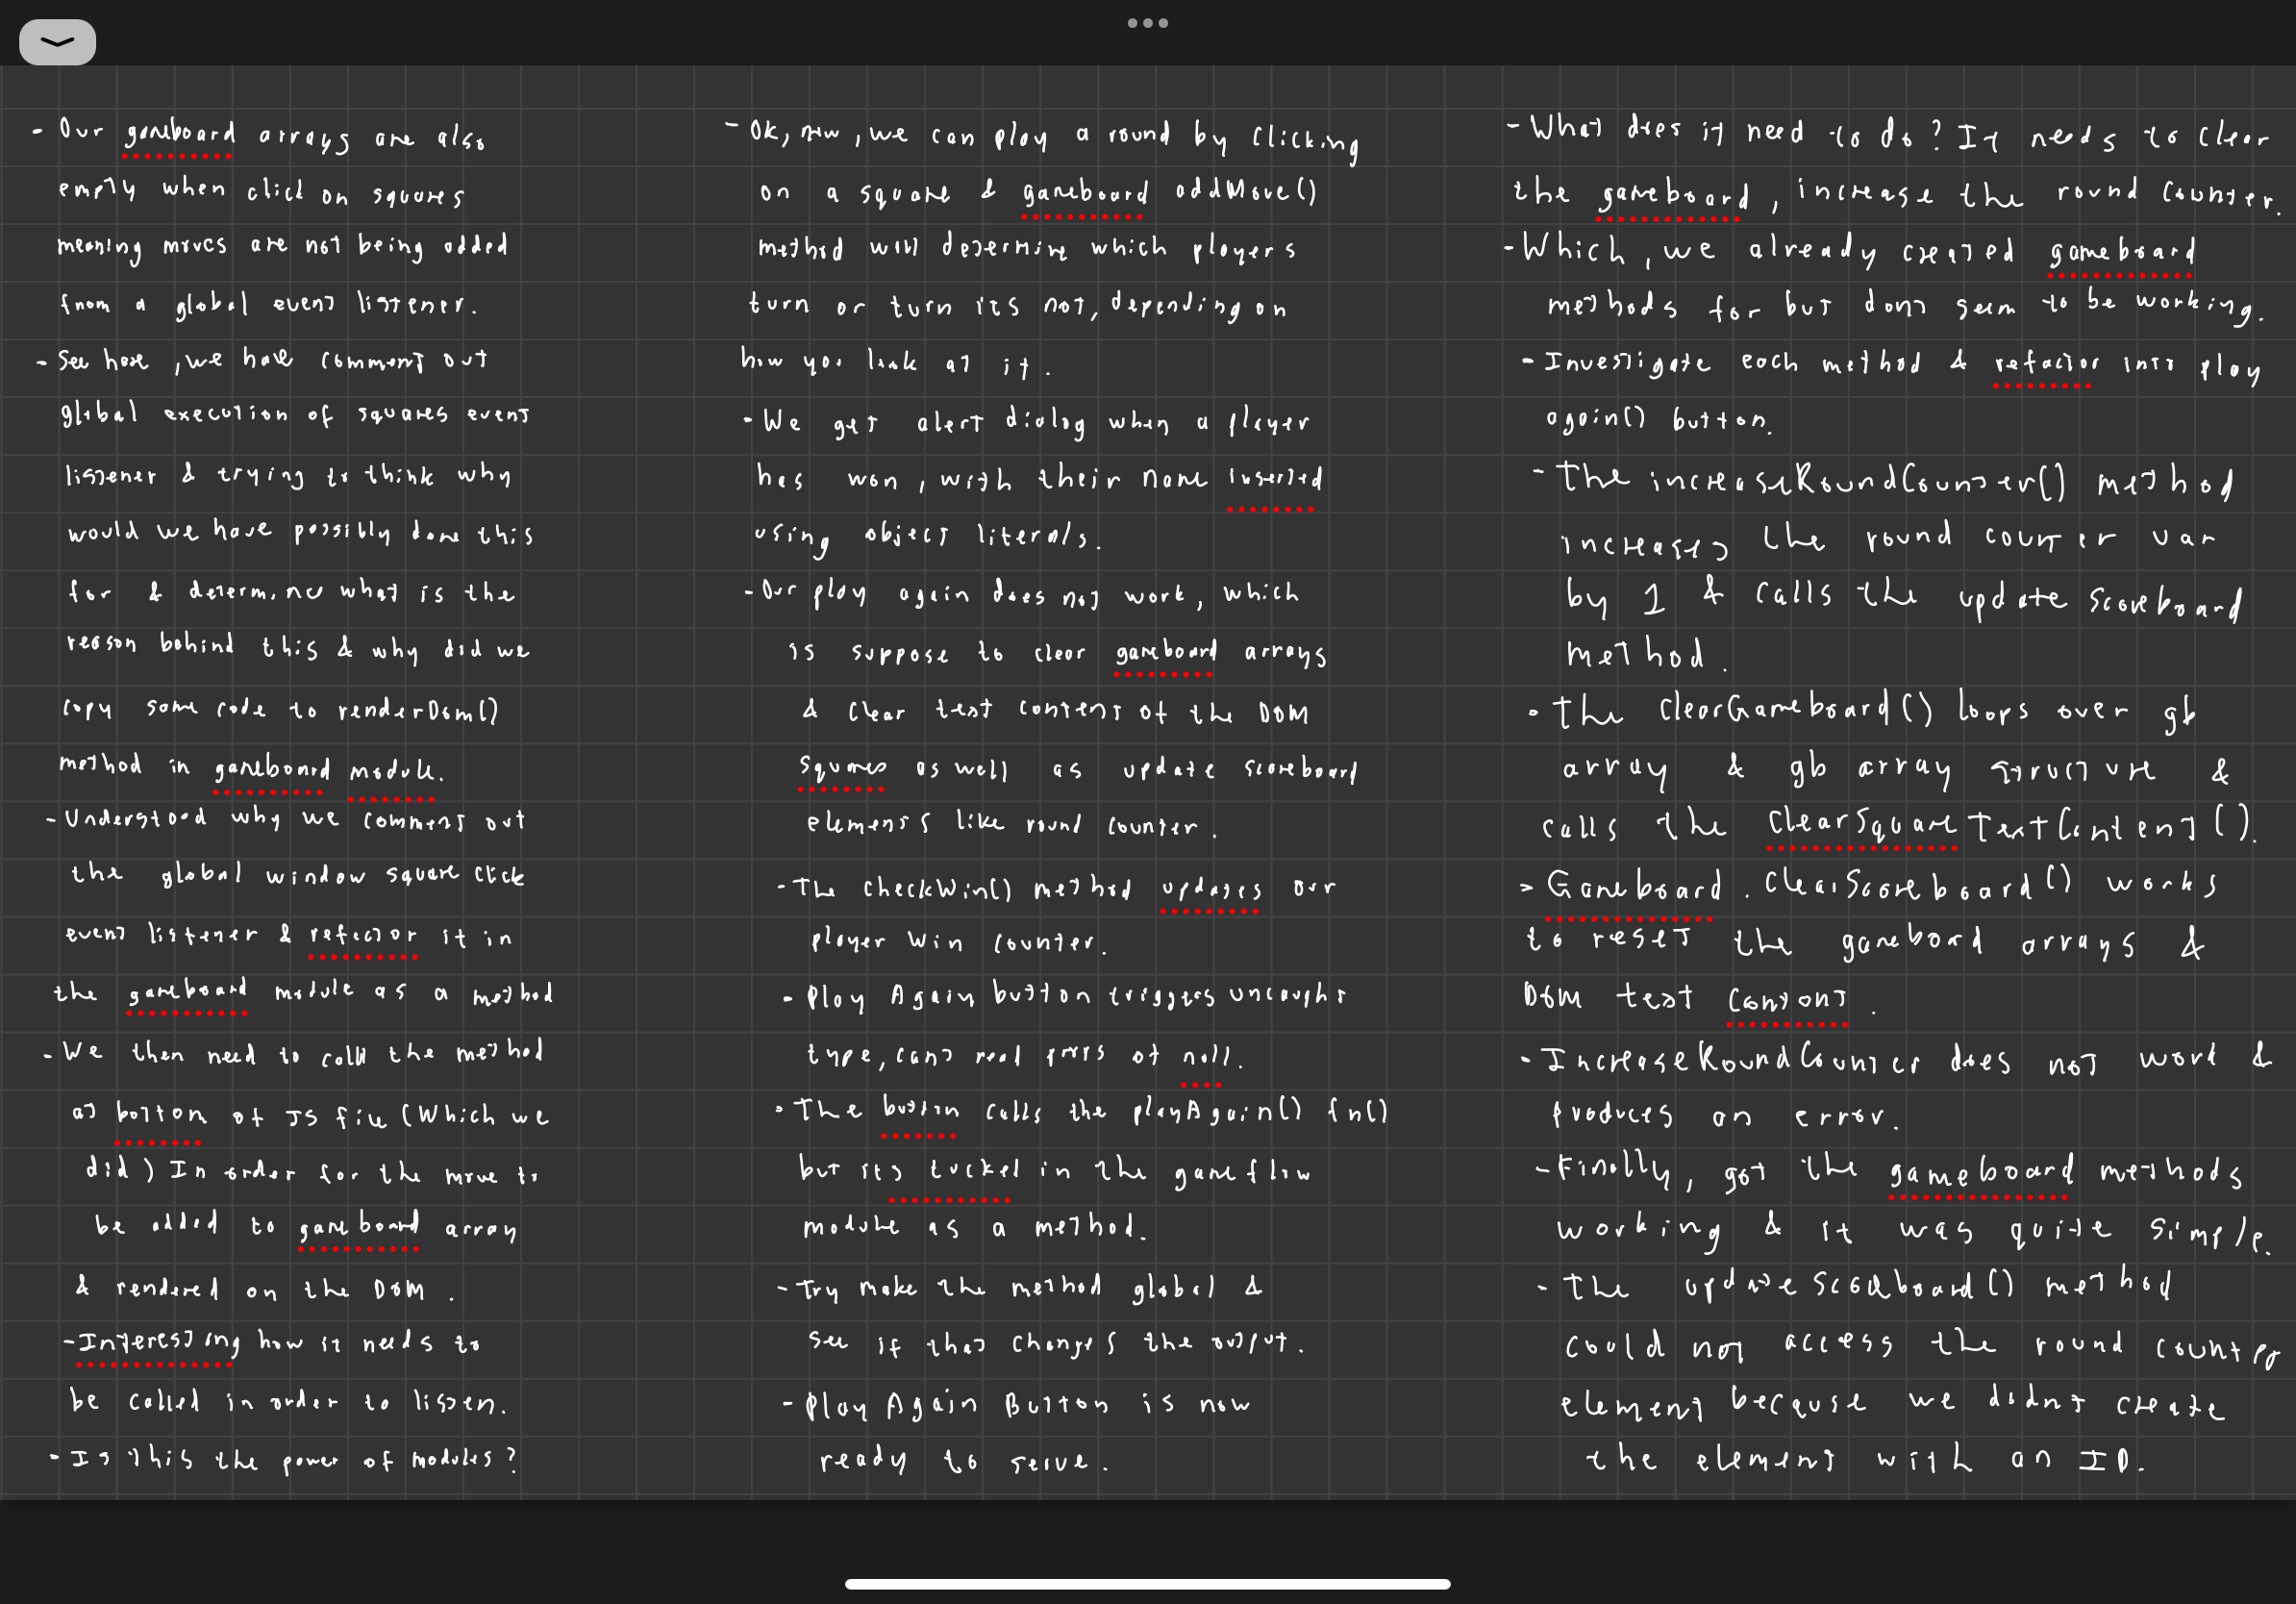 - Our gameboard arrays are also
empty when click on squares
meaning moves are not being added
from a global event listener.
- See here, we have comment out
global execution of squares event
listener & trying to think why
would we have possibly done this
for & determine what is the
reason behind this & why did we
copy some code to renderDom()
method in gameboard module.
- Understood why we comment out
the global window square click
event listener & refactor it in
the gameboard module as a method
- We then need to call the method
at botton of JS file (Which we
did) In order for the move to
be added to gameboard array
& rendered on the DOM.
- Interesting how it needs to
be called in order to listen.
- Is this the power of modules?
- Ok, now, we can play a round by clicking
on a square & gameboard addMove()
method will determine which players
turn or turn its not, depending on
how you look at it.
- We get alert dialog when a player
has won, with their name inserted
using object literals.
- Our play again does not work, which
is suppose to clear gameboard arrays
& clear text content of the DOM
squares as well as update scoreboard
elements like round counter.
- The checkWin() method updates our
player win counter.
- Play Again button triggers uncaught
type, cant read props of null.
- The button calls the playAgain() fn()
but its tucked in the gameflow
module as a method.
- Try make the method global &
see if that changes the output.
- Play Again Button is now
ready to serve.
- What does it need to do? It needs to clear
the gameboard, increase the round counter.
- Which, we already created gameboard
methods for but dont seem to be working.
- Investigate each method & refactor into play
again() button.
- The increaseRoundCounter() method
increases the round counter var
by 1 & calls the update scoreboard
method.
- The clearGameboard() loops over gb
array & gb array structure &
calls the clearSquareTextContent().
- Gameboard.clearScoreboard() works
to reset the gameboard arrays &
DOM text content.
- IncreaseRoundCounter does not work &
produces an error.
- Finally, got the gameboard methods
working & it was quite simple.
- The updateScoreboard() method
could not access the round counter
element because we didnt create
the element with an ID.